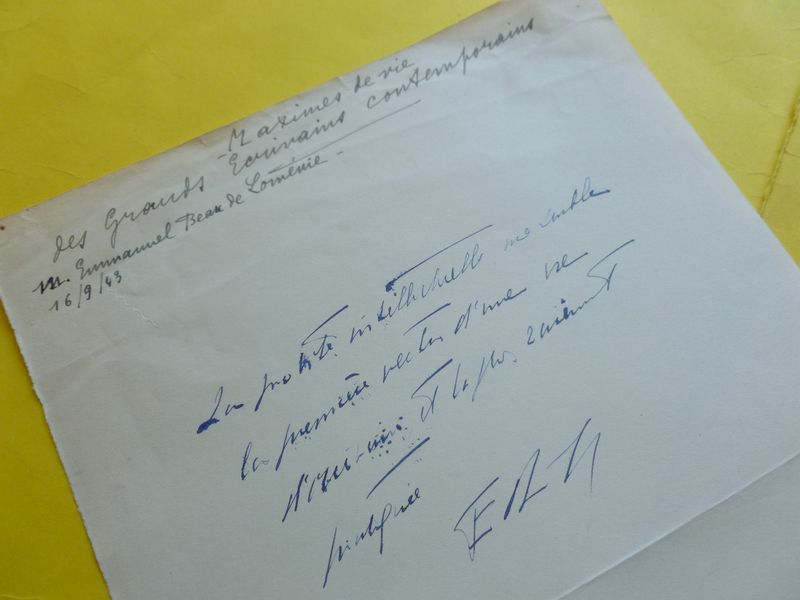 Maximes de vie
des Grands Ecrivains contemporains
M. Emmanuel Beau de Loménie -
16/9/43
La probité intellectuelle me semble
la première vertu d'une vie
d'écrivain et la plus rarement
pratiquée